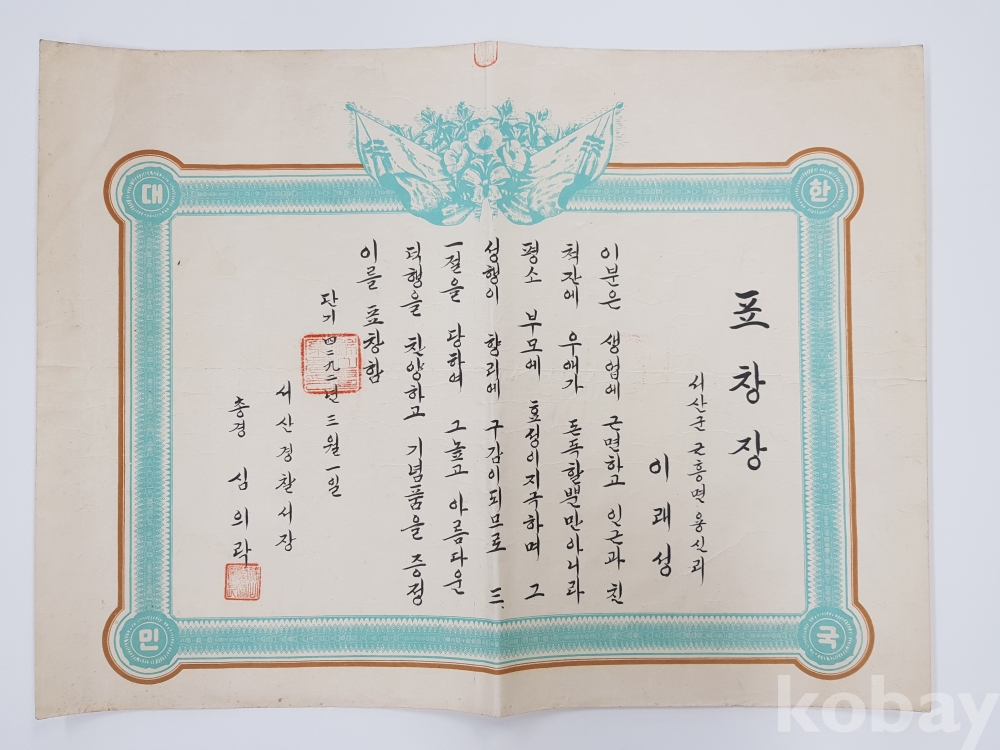 대 한 민 국
표창장
서산군 근흥면 용신리
이래성
이분은 생업에 근면하고 인근과 친
척간에 우애가 돈독할뿐만아니라
평소 부모에 효성이지극하며 그
성행이 향리에 구감이되므로 三.
一절을 당하여 그높고 아름다운
덕행을 찬양하고 기념품을 증정
이를 표창함
단기 四二九二년 三월 一일
서산경찰서장
총경 심의락
kobay